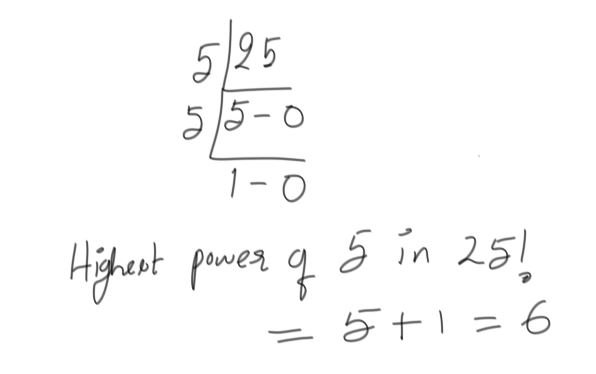 5 25
5 5-0
1-0
Highest power of 5 in 25!
= 5+1 = 6